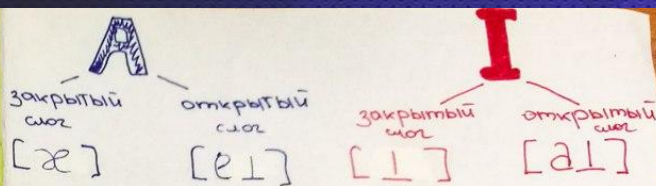 A I
закрытый слог открытый слог закрытый слог открытый слог
[æ] [eɪ] [ɪ] [aɪ]